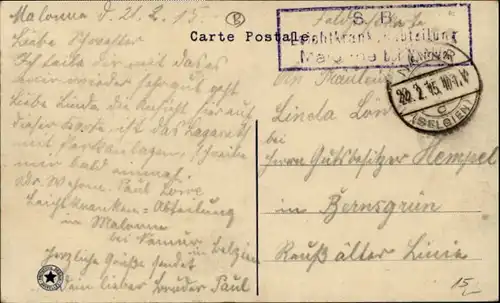 Malonne d. 21.2.15.
Liebe Schwester
Ich teile dir mit das es
mir wieder sehr gut geht
Liebe Linda die Ansicht hier auf
dieser Karte ist das Lazarett
mit Parkanlagen, schreibe
mir bald einmal.
Paul Löwe
Leichtkranken=Abteilung
in Malonne
bei Namur in Belgien
Herzliche Grüße sendet
Dein lieber Bruder Paul
Carte Postale
S. B.
Leichtkrank. Abteilung
Malonne b. Namur
22.2.15
C
(BELGIEN)
Fräulein
Linda
bei
Herrn Gutsbesitzer Hempel
in Bernsgrün
Reuß älter Linie
15,-